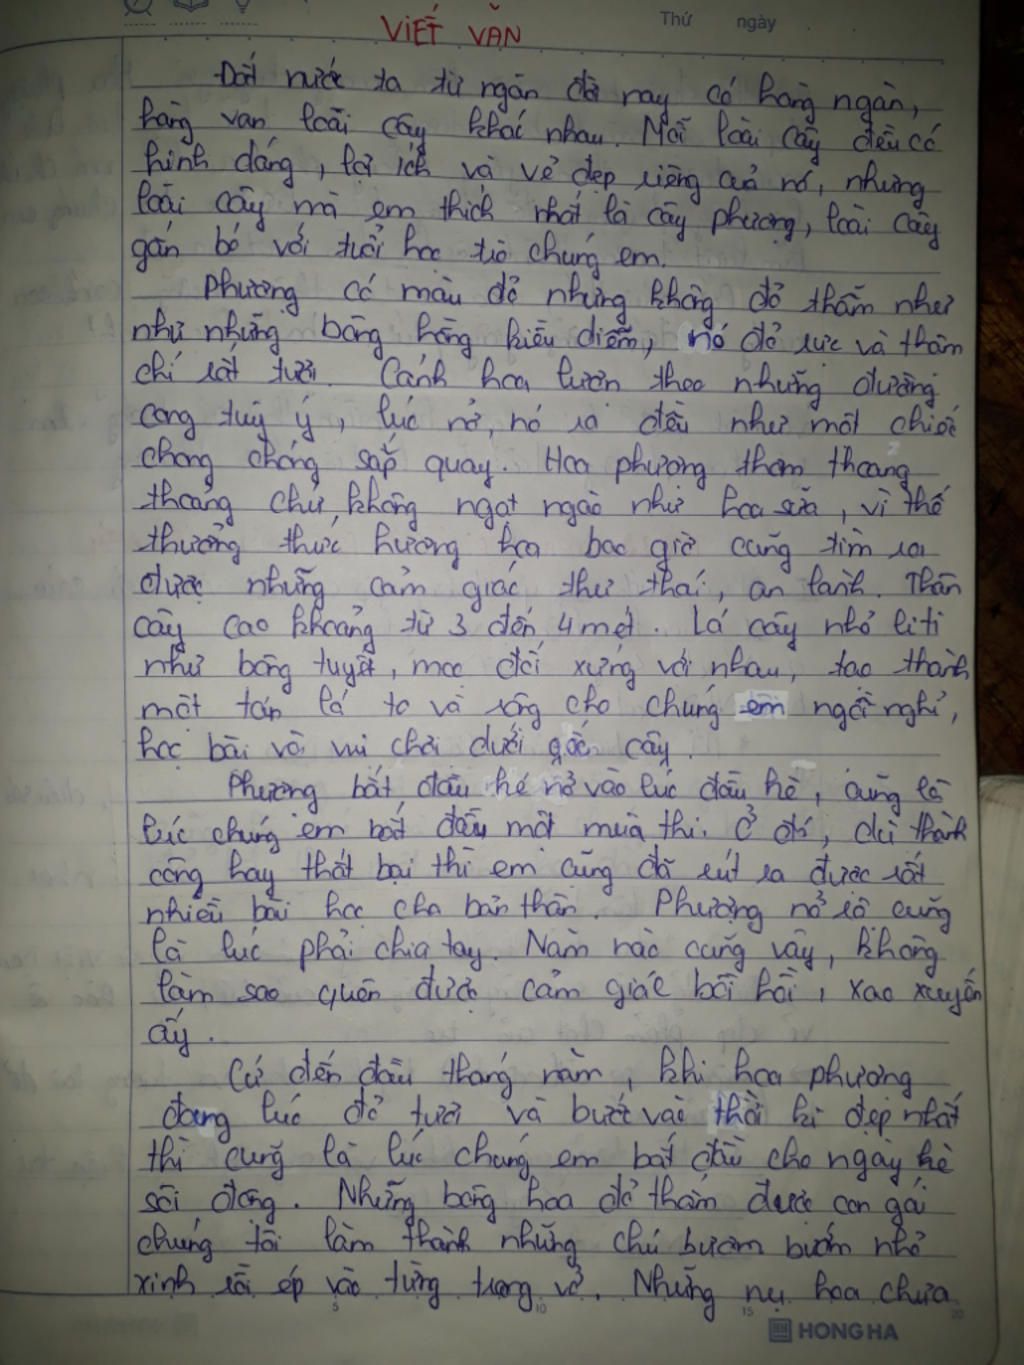 Thứ ngày
VIẾT VĂN
Đất nước ta từ ngàn đời nay có hàng ngàn,
hàng vạn loài cây khác nhau. Mỗi loài cây đều có
hình dáng, lợi ích và vẻ đẹp riêng của nó, nhưng
loài cây mà em thích nhất là cây phượng, loài cây
gắn bó với tuổi học trò chúng em.
Phượng có màu đỏ nhưng không đỏ thắm như
như những bông hồng kiều diễm, nó đỏ rực và thậm
chí rất tươi. Cánh hoa lượn theo những đường
cong tuỳ ý, lúc nở, nó ra đều như một chiếc
chong chóng sắp quay. Hoa phượng thơm thoang
thoảng chứ không ngọt ngào như hoa sữa, vì thế
thưởng thức hương hoa bao giờ cũng tìm ra
được những cảm giác thư thái, an lành. Thân
cây cao khoảng từ 3 đến 4 mét. Lá cây nhỏ li ti
như bông tuyết, mọc đối xứng với nhau, tạo thành
một tán lá to và rộng cho chúng em ngồi nghỉ,
học bài và vui chơi dưới gốc cây.
Phượng bắt đầu hé nở vào lúc đầu hè, cũng là
lúc chúng em bắt đầu một mùa thi. Ở đó, dù thành
công hay thất bại thì em cũng đã rút ra được rất
nhiều bài học cho bản thân. Phượng nở rộ cũng
là lúc phải chia tay. Năm nào cũng vậy, không
làm sao quên được cảm giác bồi hồi, xao xuyến
ấy.
Cứ đến đầu tháng năm, khi hoa phượng
đang lúc đỏ tươi và bước vào thời kì đẹp nhất
thì cũng là lúc chúng em bắt đầu cho ngày hè
sôi động. Những bông hoa đỏ thắm được con gái
chúng tôi làm thành những chú bươm bướm nhỏ
xinh rồi ép vào từng trang vở. Những nụ hoa chưa
5 10 15 20
HONG HA